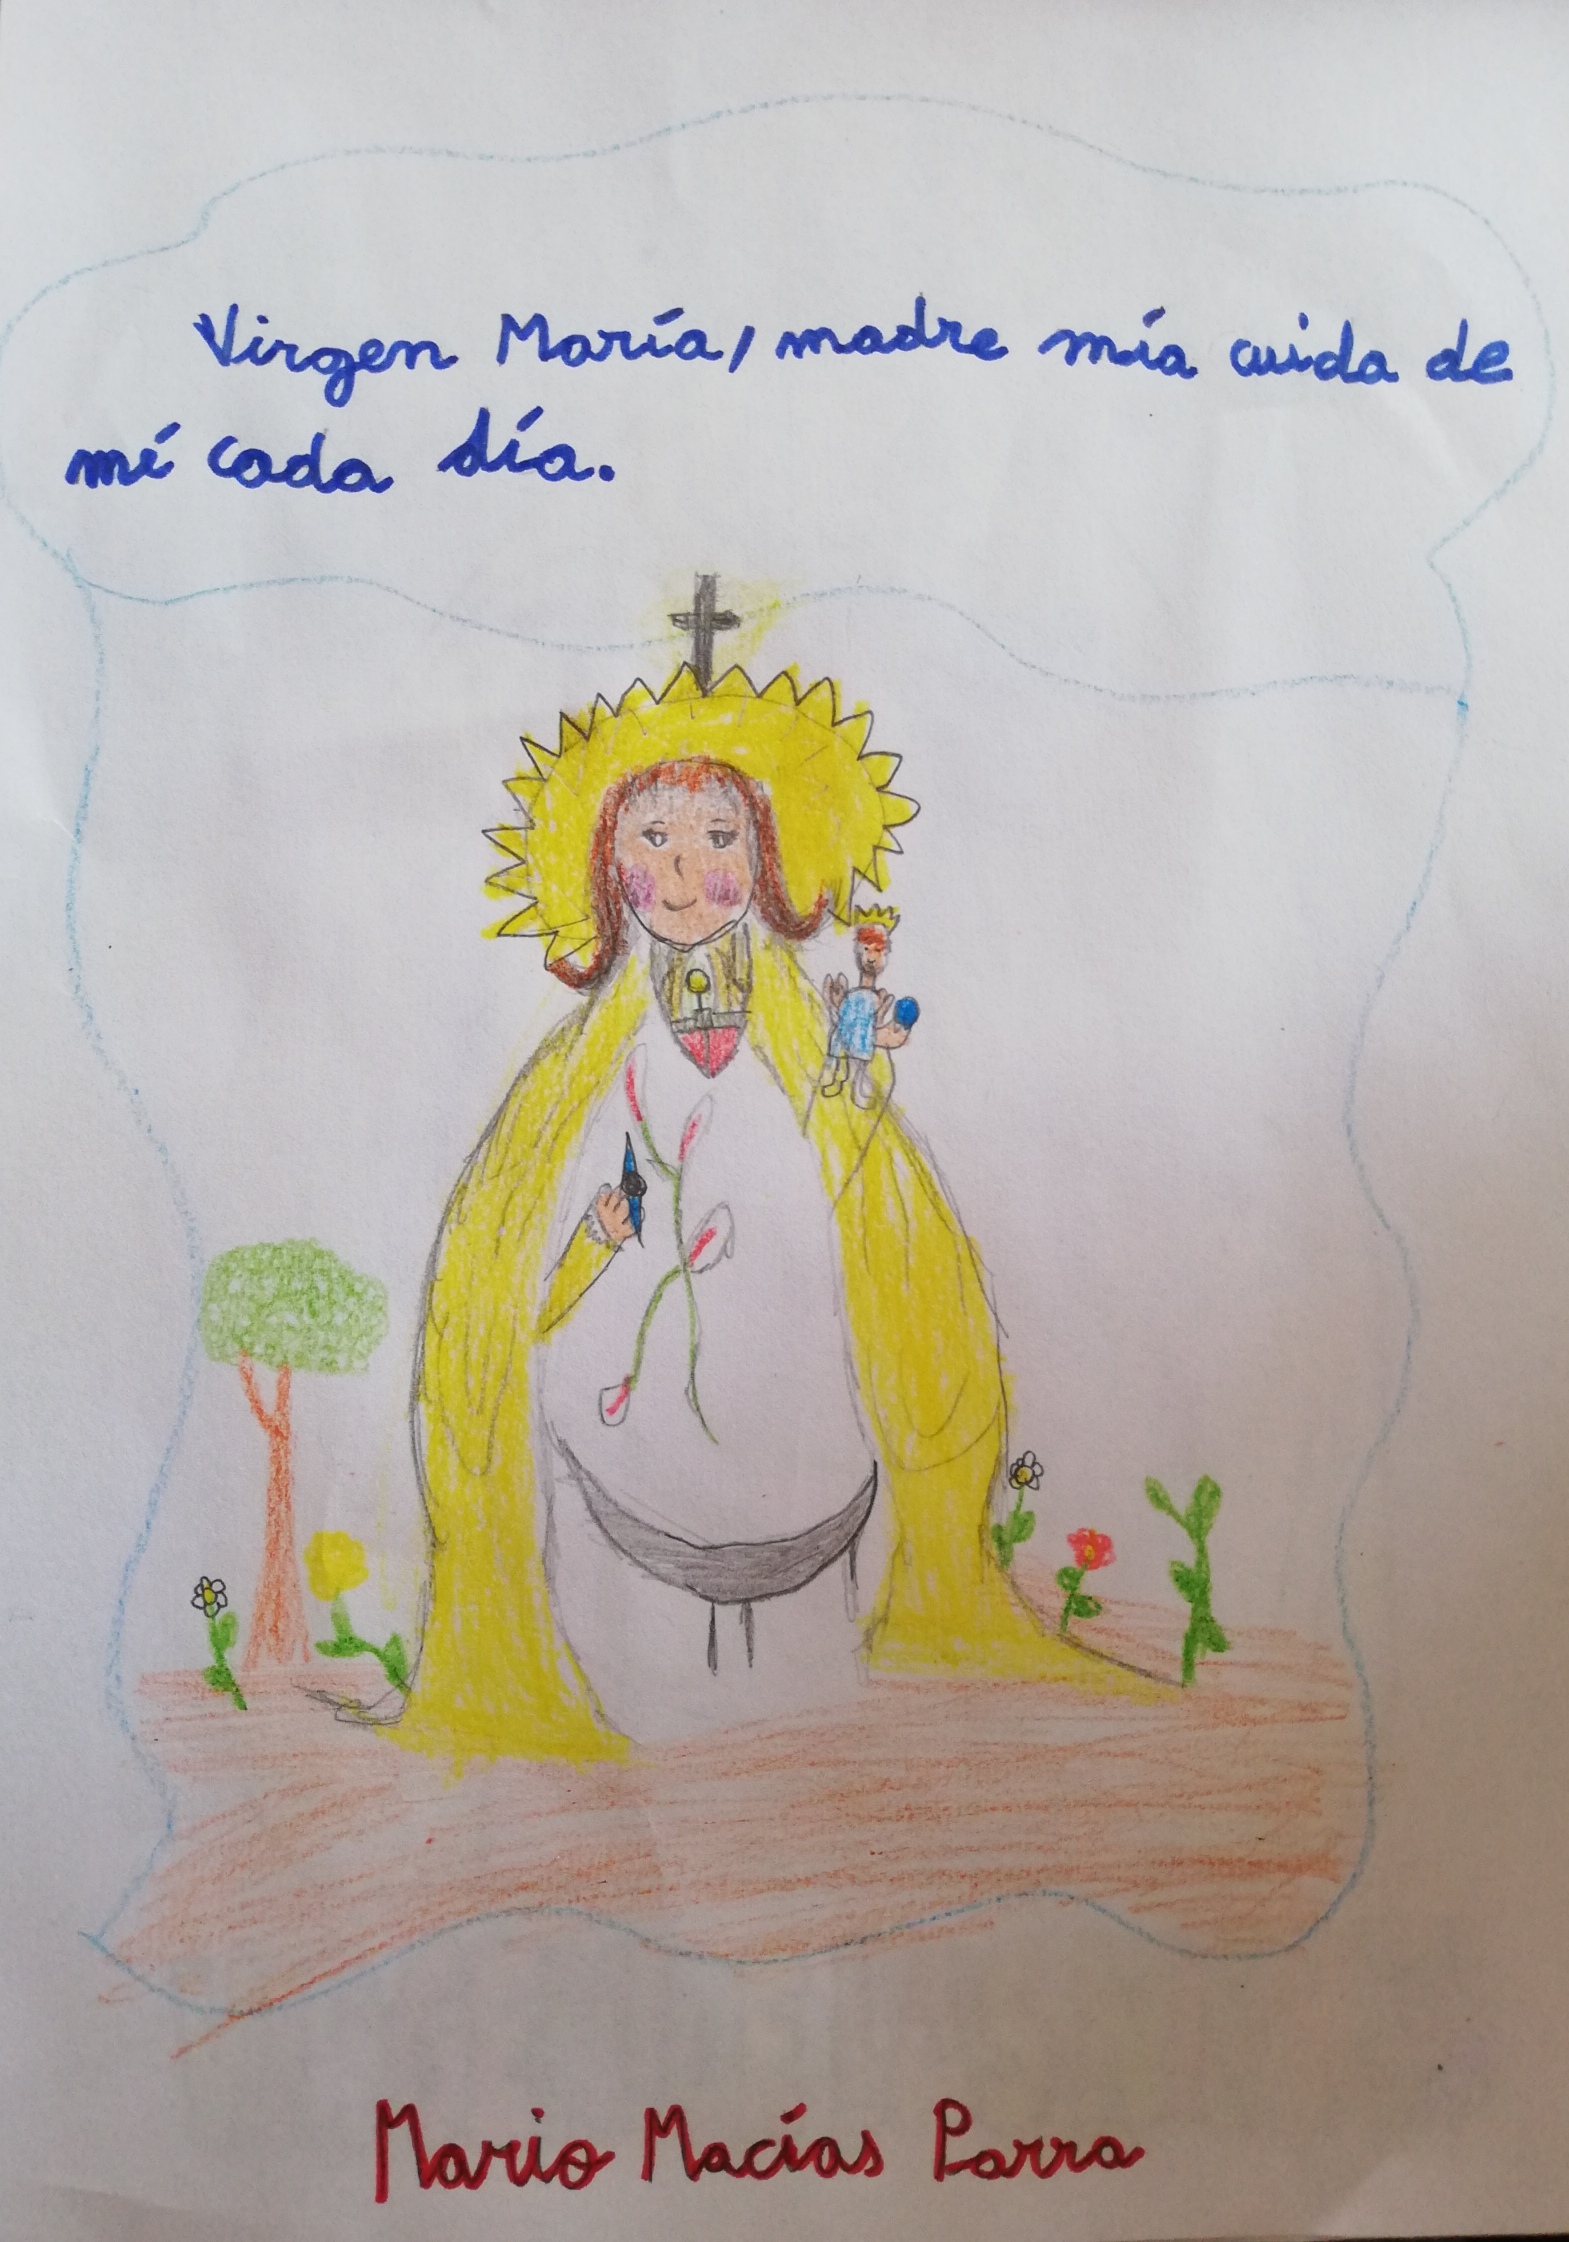 Virgen María, madre mía cuida de
mí cada día.
Mario Macías Parra